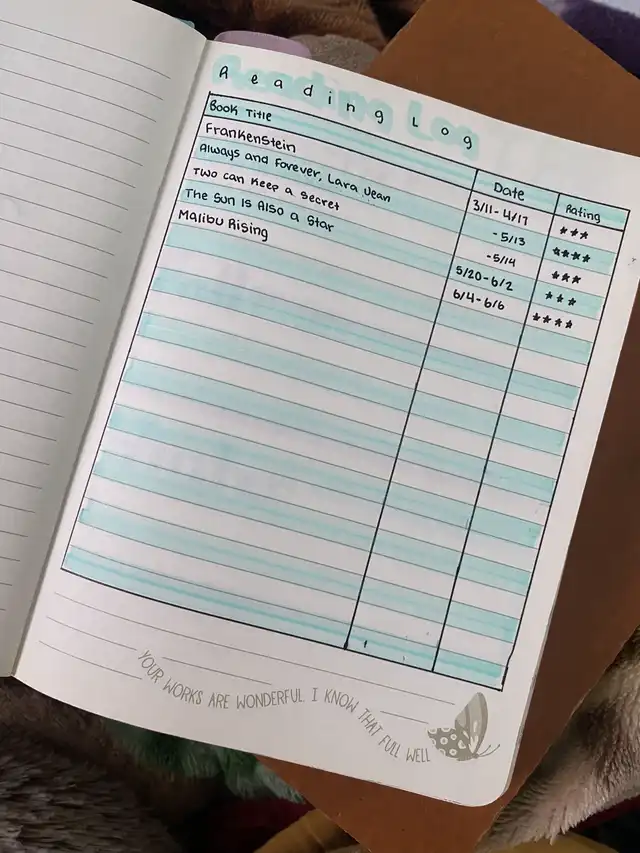 Reading Log
Book Title Date Rating
Frankenstein 3/11-4/17 ★★★
Always and Forever, Lara Jean -5/13 ★★★★
Two can Keep a Secret -5/14 ★★★
The Sun Is Also a Star 5/20-6/2 ★★★
Malibu Rising 6/4-6/6 ★★★★
YOUR WORKS ARE WONDERFUL I KNOW THAT FULL WELL